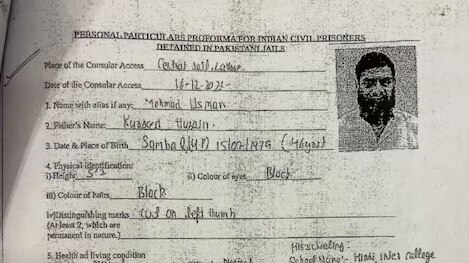 PERSONAL PARTICULARS PROFORMA FOR INDIAN CIVIL PRISONERS
DETAINED IN PAKISTANI JAILS
Place of the Consular Access Central Jail, Lahore
Date of the Consular Access 16-12-2025
1. Name with alias if any: Mohmad Usman
2. Father's Name: Husain
3. Date & Place of Birth 15/07/1979 (46 years)
4. Physical Identification:
i) Height 5'7 ii) Colour of eyes Black
iii) Colour of hairs Black
iv) Distinguishing marks Cut on left thumb
(At least 2, which are
permanent in nature.)
His schooling:-
School Name:- Hindi inter college
5. Health ad living condition